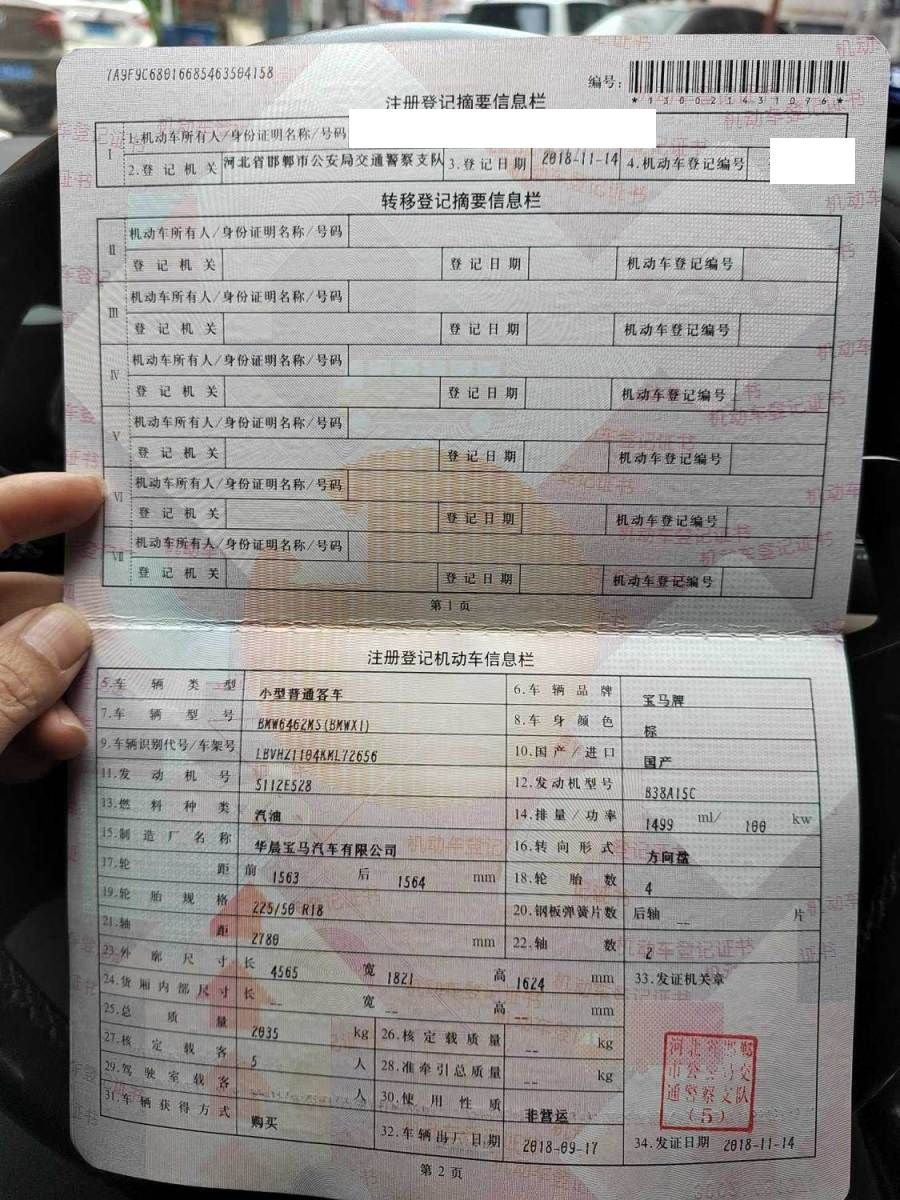 7A9F9C68016685463504158
编号:
*130021431076*
注册登记摘要信息栏
I
1.机动车所有人/身份证明名称/号码
2.登记机关 河北省邯郸市公安局交通警察支队 3.登记日期 2018-11-14 4.机动车登记编号
转移登记摘要信息栏
II
机动车所有人/身份证明名称/号码
登记机关 登记日期 机动车登记编号
III
机动车所有人/身份证明名称/号码
登记机关 登记日期 机动车登记编号
IV
机动车所有人/身份证明名称/号码
登记机关 登记日期 机动车登记编号
V
机动车所有人/身份证明名称/号码
登记机关 登记日期 机动车登记编号
VI
机动车所有人/身份证明名称/号码
登记机关 登记日期 机动车登记编号
VII
机动车所有人/身份证明名称/号码
登记机关 登记日期 机动车登记编号
第1页
注册登记机动车信息栏
5.车辆类型 小型普通客车 6.车辆品牌 宝马牌
7.车辆型号 BMW6462MS(BMWX1) 8.车身颜色 棕
9.车辆识别代号/车架号 LBVHZ1104KML72656 10.国产/进口 国产
11.发动机号 5112E528 12.发动机型号 B38A15C
13.燃料种类 汽油 14.排量/功率 1499 ml/ 100 kw
15.制造厂名称 华晨宝马汽车有限公司 16.转向形式 方向盘
17.轮距 前 1563 后 1564 mm 18.轮胎数 4
19.轮胎规格 225/50 R18 20.钢板弹簧片数 后轴 -- 片
21.轴距 2780 mm 22.轴数 2
23.外廓尺寸 长 4565 宽 1821 高 1624 mm 33.发证机关章
24.货厢内部尺寸 长 -- 宽 -- 高 -- mm
25.总质量 2035 kg 26.核定载质量 -- kg
27.核定载客 5 人 28.准牵引总质量 -- kg
29.驾驶室载客 人 30.使用性质 非营运
31.车辆获得方式 购买 32.车辆出厂日期 2018-09-17 34.发证日期 2018-11-14
河北省邯郸
市公安局交
通警察支队
(5)
第2页